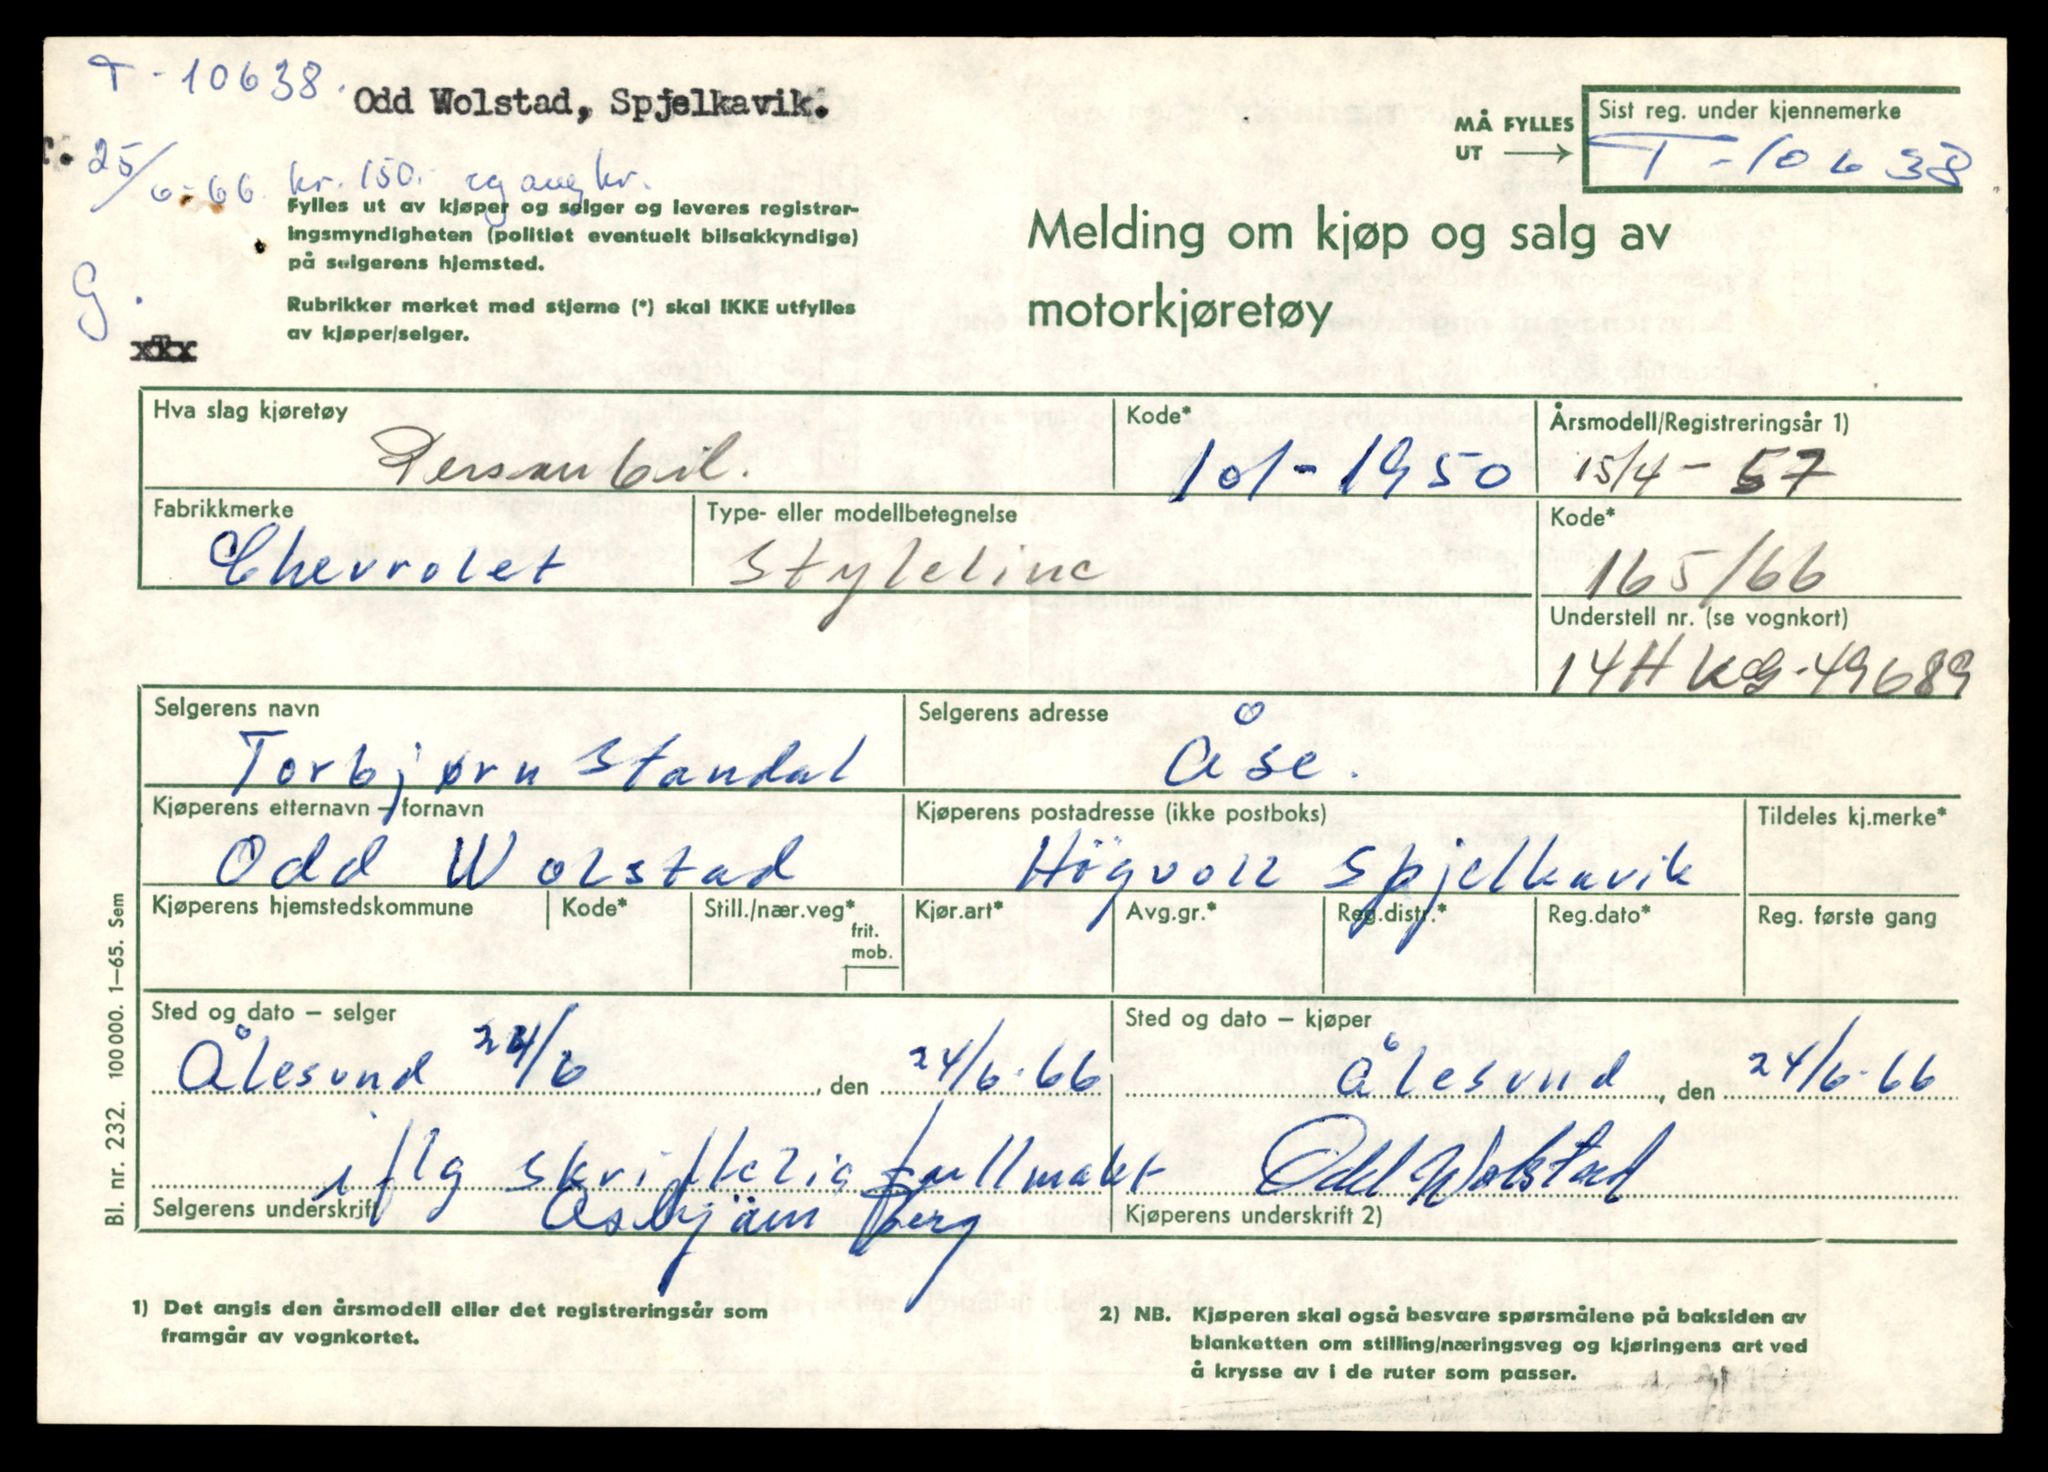 T-10638.
Odd Wolstad, Spjelkavik.
25/6-66. kr. 150.- og avg kr.
G.
xxx
Fylles ut av kjøper og selger og leveres registrer-
ingsmyndigheten (politiet eventuelt bilsakkyndige)
på selgerens hjemsted.
Rubrikker merket med stjerne (*) skal IKKE utfylles
av kjøper/selger.
MÅ FYLLES
UT
Sist reg. under kjennemerke
T-10638
Melding om kjøp og salg av
motorkjøretøy
Hva slag kjøretøy
Personbil.
Kode*
101-1950
Årsmodell/Registreringsår 1)
15/4-57
Fabrikkmerke
Chevrolet
Type- eller modellbetegnelse
Styleline
Kode*
165/66
Understell nr. (se vognkort)
14HKG-49689
Selgerens navn
Torbjørn Standal
Selgerens adresse
Åse.
Kjøperens etternavn - fornavn
Odd Wolstad
Kjøperens postadresse (ikke postboks)
Högvoll Spjelkavik
Tildeles kj.merke*
Kjøperens hjemstedskommune
Kode*
Still./nær.veg*
frit.
mob.
Kjør.art*
Avg.gr.*
Reg.distr.*
Reg.dato*
Reg. første gang
Sted og dato – selger
Ålesund 24/6, den 24/6-66
Sted og dato – kjøper
Ålesund, den 24/6-66
iflg skriftelig fullmakt
Selgerens underskrift
Asbjörn Berg
Odd Wolstad
Kjøperens underskrift 2)
1) Det angis den årsmodell eller det registreringsår som
framgår av vognkortet.
2) NB. Kjøperen skal også besvare spørsmålene på baksiden av
blanketten om stilling/næringsveg og kjøringens art ved
å krysse av i de ruter som passer.
Bl. nr. 232. 100 000. 1—65. Sem